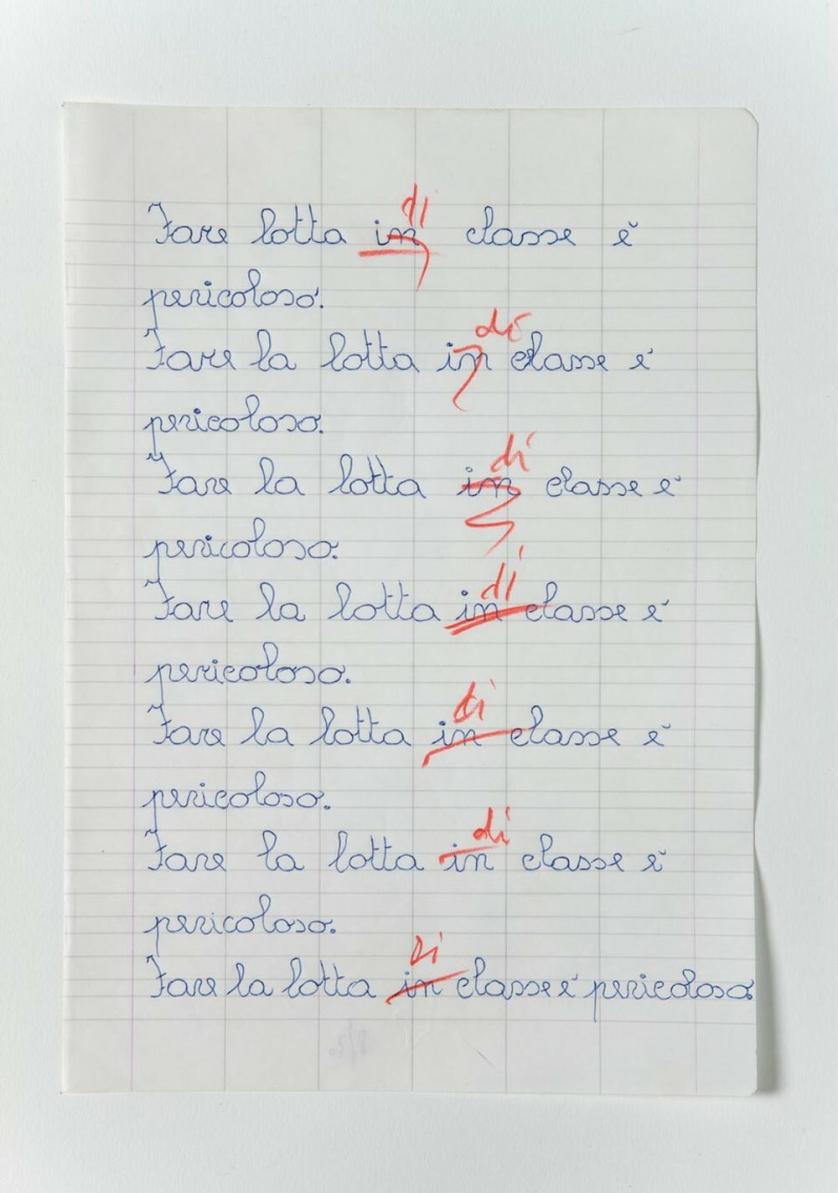 di
Fare lotta in classe è
pericoloso.
di
Fare la lotta in classe è
pericoloso.
di
Fare la lotta in classe è
pericoloso.
di
Fare la lotta in classe è
pericoloso.
di
Fare la lotta in classe è
pericoloso.
di
Fare la lotta in classe è
pericoloso.
Di
Fare la lotta in classe è pericoloso